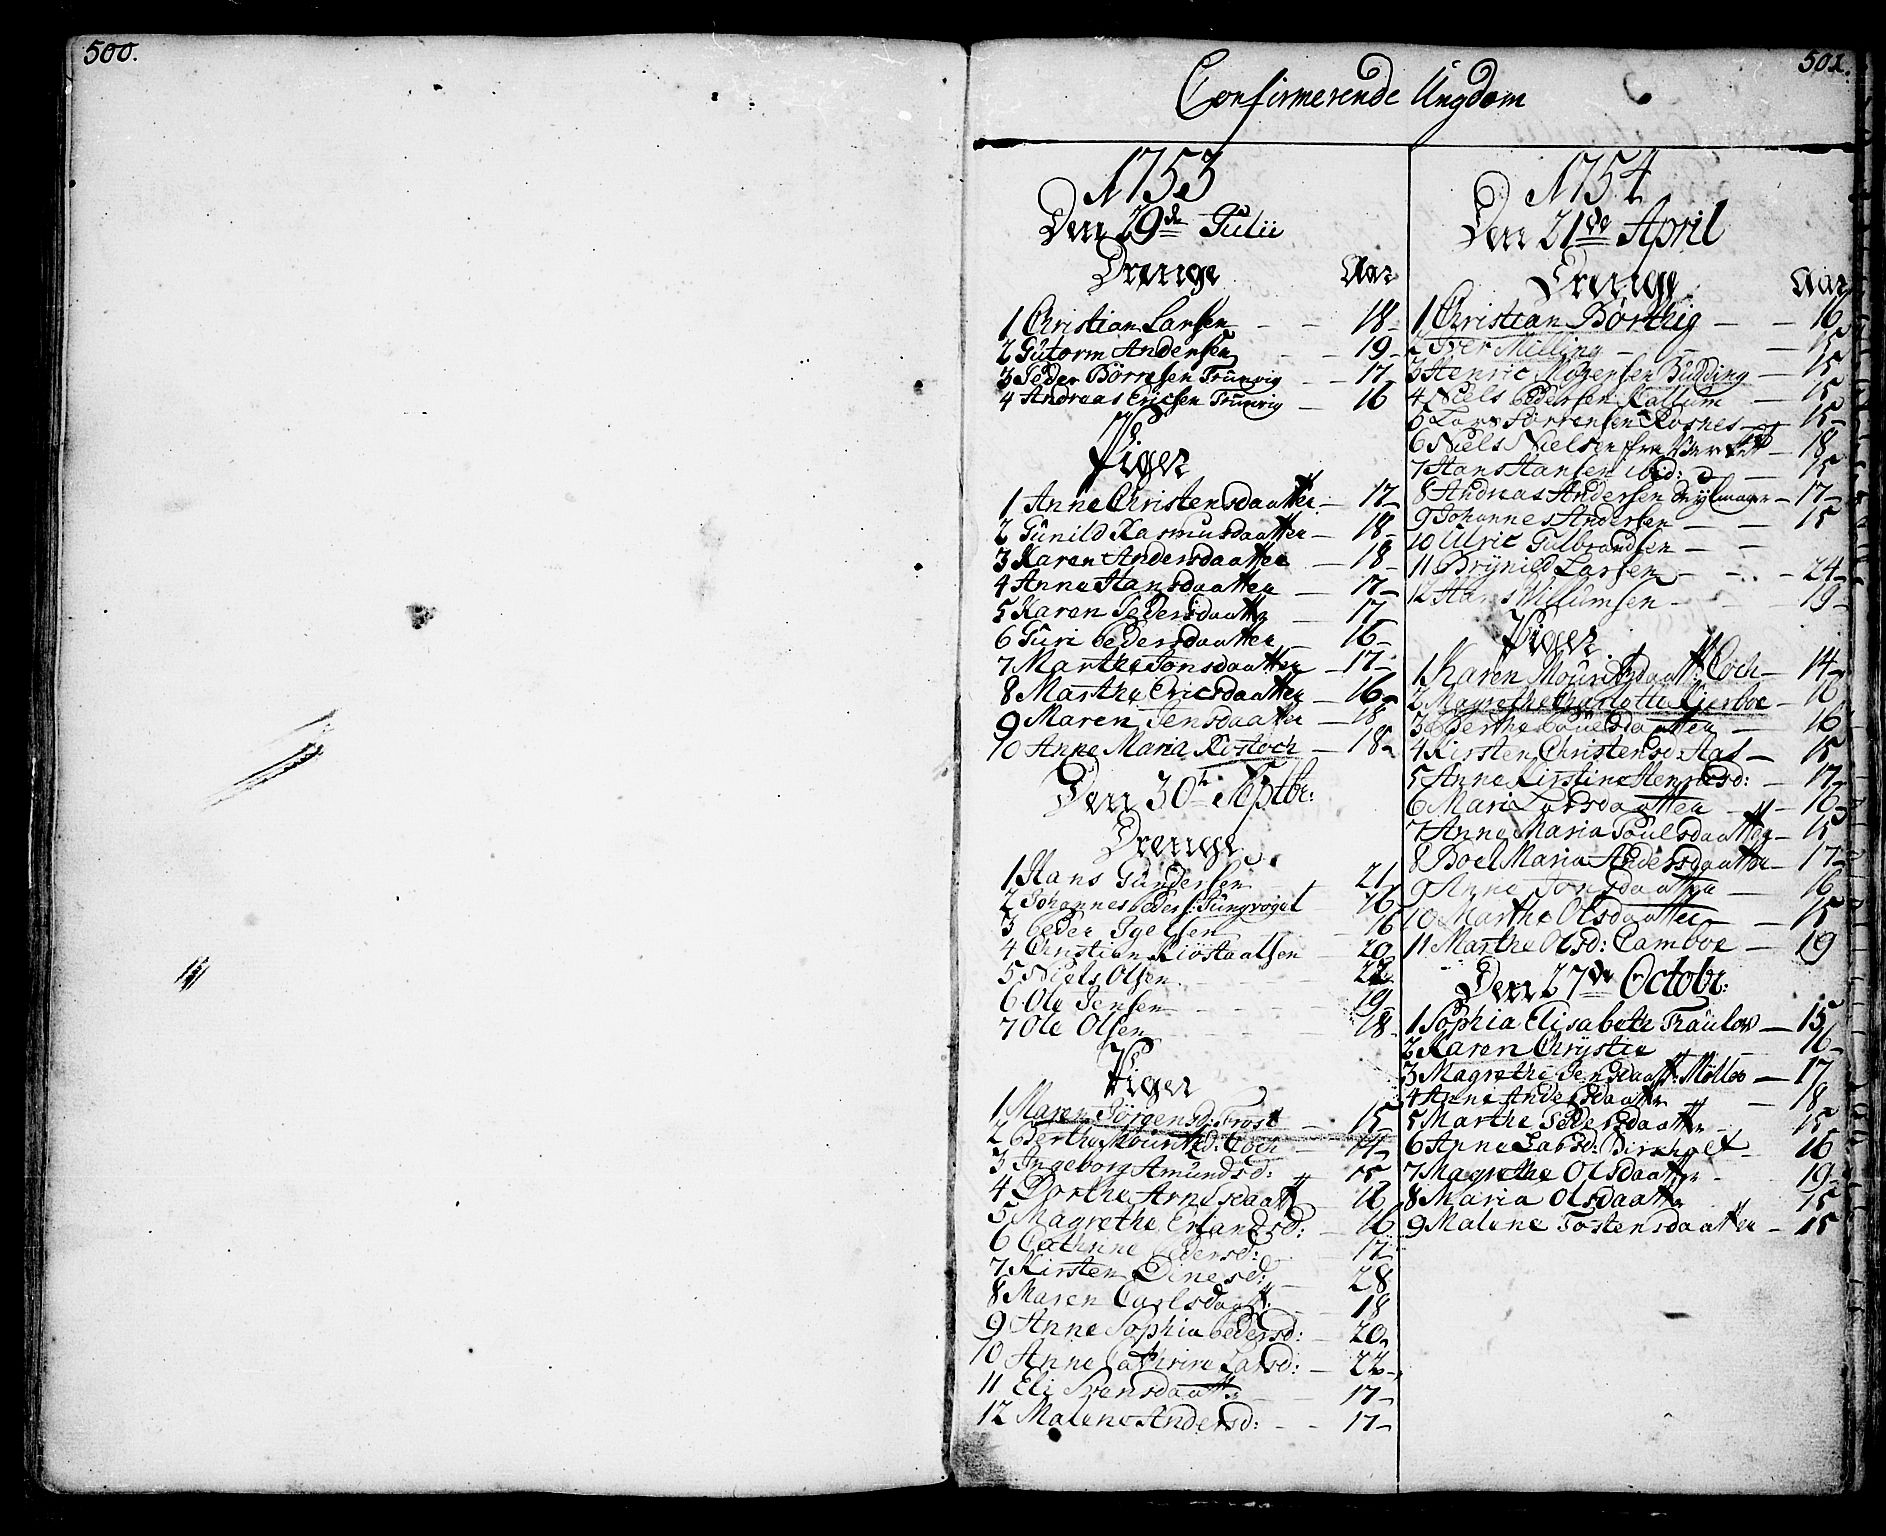 500.
501.
Confirmerende Ungdom
1753
Den 29de Julii
Drenge Aar
1 Christian Larsen - - 18-
2 Gutorm Andersen - 19-
3 Peder Börresen Trunvig - 17-
4 Andreas Ericsen Trunvig - 16
Piger
1 Anne Christensdaatter - 17-
2 Gunild Rasmusdaatter - 18-
3 Karen Andersdaatter - 18-
4 Anne Hansdaatter - 17-
5 Karen Pedersdaatter - 17
6 Guri Pedersdaatter - 16-
7 Marthe Jonsdaatter - 17-
8 Marthe Ericsdaatter - 16-
9 Maren Jensdaatter - 18-
10 Anne Maria Rostoch - 18-
Den 30te Septbr:
Drenge
1 Hans Gundersen 21
2 Johannes Peders: Jungvogel - 16
3 Peder Igelsen 16
4 Christian Kiöstaalsen - 20
5 Niels Olsen 22
6 Ole Jensen - 19-
7 Ole Olsen 18-
Piger
1 Maren Jörgensd: Frost - 15-
2 Berthe Mouritzd: Coch - 14-
3 Ingeborg Amundsd: 15-
4 Dorthe Arnesdaatt 16
5 Magrethe Erlandsd: 16
6 Cathrine Pedersd: - 17-
7 Kirsten Dinesd: - 28
8 Maren Carlsdaatt: - 18
9 Anne Sophia Pedersd: - 20-
10 Anne Cathrine Larsd: - 22-
11 Eli Svensdaatt: 17-
12 Malene Andersd: - - 17-
1754
Den 21de April
Drenge Aar
1 Christian Börthig - - 16
2 Iver Milling - - 15
3 Henric Mogensen Budding - 15
4 Niels Pedersen Kallum - 15
6 Lars Sörrensen Rosnes - 15-
6 Niels Nielsen fra Værket - 18
7 Hans Hansen ibid: - 15
8 Andreas Andersen - 17-
9 Johannes Andersen - - 15
10 Ulric Gulbrandsen - -
11 Brynild Larsen - - 24
12 Hans Villumsen - 19-
Piger
1 Karen Mouritzdaatt: Coch - 14-
2 Magrethe Charlotte Kierboe - 16
3 Berthe Poulsdaatter - 16
4 Kirsten Christensd: - 15
5 Anne Kirstine - 17
6 Mari Larsdaatter - 16
7 Anne Maria Poulsdaatter - 15
8 Boel Maria Andersdaatter - 17-
9 Anne Jonsdaatter - 16
10 Marthe Olsdaatter - 15
11 Marthe Olsd: Camboe - 19
Den 27de Octobr:
1 Sophia Elisabeth Fräulov - 15
2 Karen Chrystie - 16
3 Magrethe Jensdaatt: Möller - 17
4 Anne Andersdaatter - 18
5 Marthe Pedersdaatter - 15
6 Anne Larsd: Birkholt - 16
7 Magrethe Olsdaatter - 19-
8 Maria Olsdaatter 15
9 Malene Tostensdaatter - 15